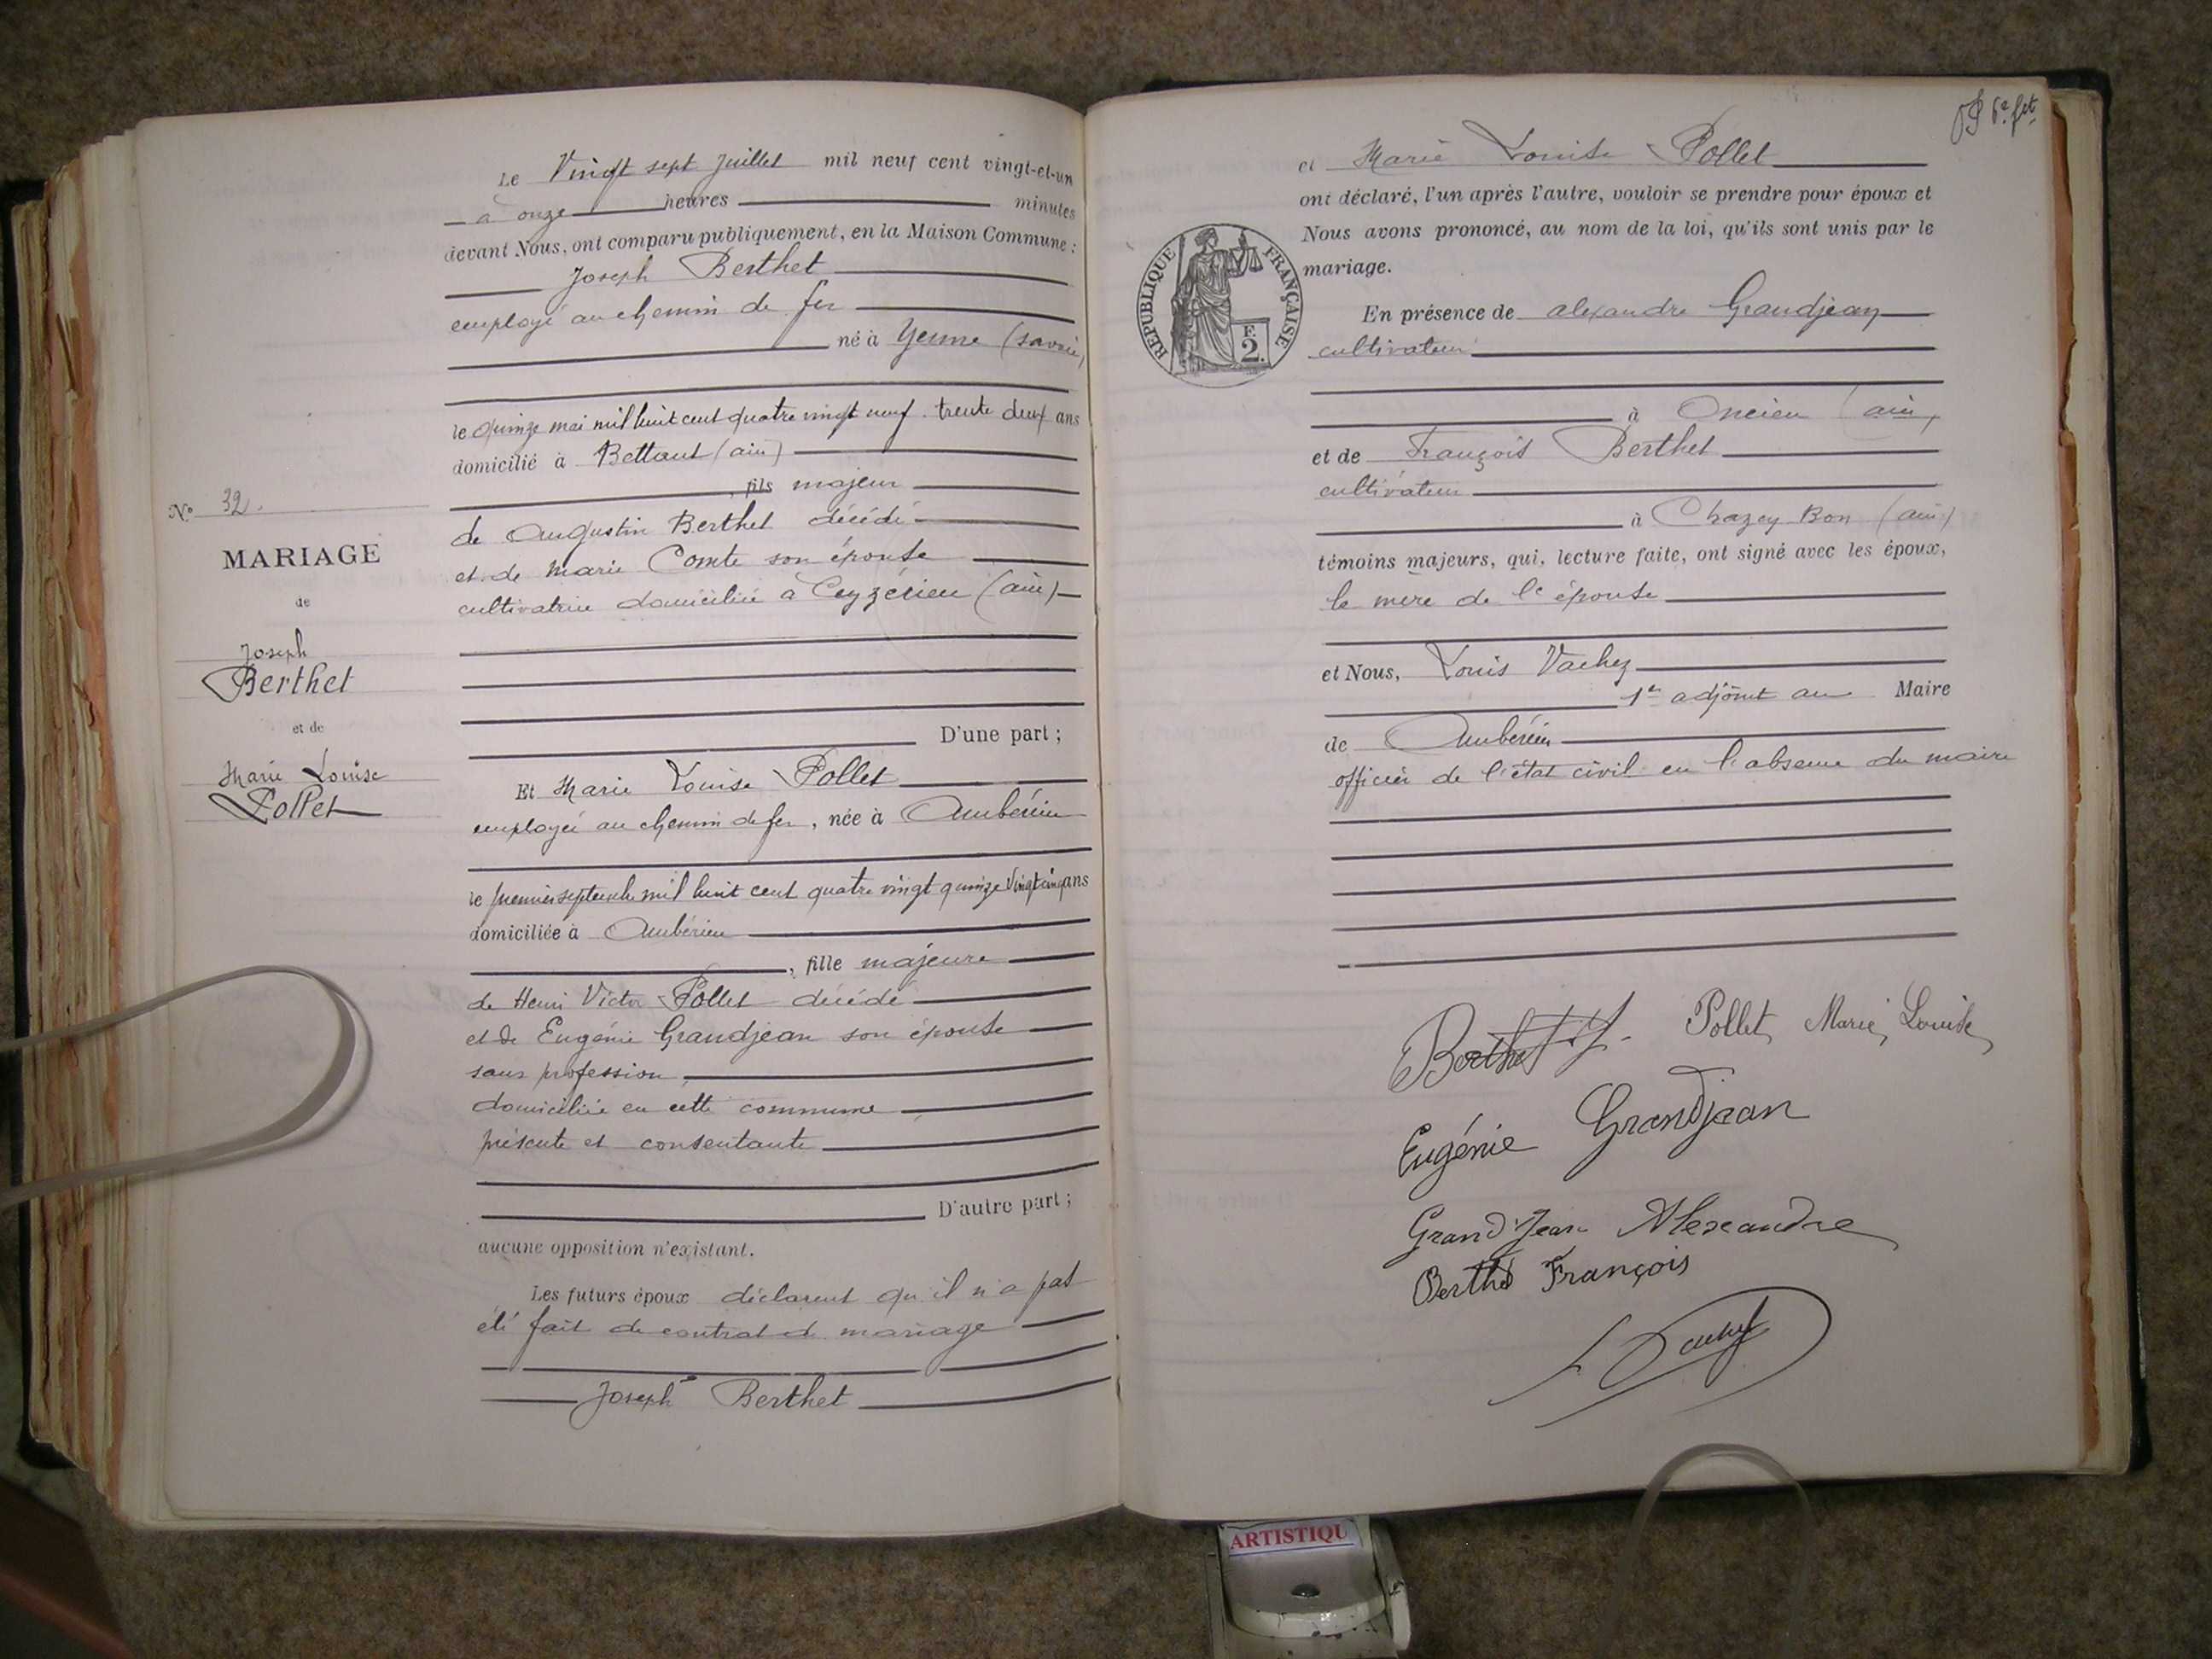 Le Vingt sept Juillet mil neuf cent vingt-et-un
à onze heures minutes
devant Nous, ont comparu publiquement, en la Maison Commune :
Joseph Berthet
employé au chemin de fer
né à Yenne (savoie)
le quinze mai mil huit cent quatre vingt neuf. trente deux ans
domicilié à Bettant (ain)
, fils majeur
de Augustin Berthet décédé
et de Marie Comte son épouse
cultivatrice domiciliée à Ceyzérieu (ain)
D'une part ;
N° 32.
MARIAGE
de
Joseph
Berthet
et de
Marie Louise
Pollet
Et Marie Louise Pollet
employée au chemin de fer, née à Ambérieu
le premier septembre mil huit cent quatre vingt quinze Vingt cinq ans
domiciliée à Ambérieu
, fille majeure
de Henri Victor Pollet décédé
et de Eugénie Grandjean son épouse
sans profession,
domiciliée en cette commune
présente et consentante
D'autre part ;
aucune opposition n'existant.
Les futurs époux déclarent qu'il n'a pas
été fait de contrat de mariage
Joseph Berthet
6e fet
et Marie Louise Pollet
ont déclaré, l'un après l'autre, vouloir se prendre pour époux et
Nous avons prononcé, au nom de la loi, qu'ils sont unis par le
mariage.
RÉPUBLIQUE FRANÇAISE
F.
2.
En présence de alexandre Grandjean
cultivateur
à Oncieu (ain)
et de François Berthet
cultivateur
à Chazey Bon (ain)
témoins majeurs, qui, lecture faite, ont signé avec les époux,
la mère de le épouse
et Nous, Louis Vachez
1er adjoint au Maire
de Ambérieu
officier de l'état civil en l'absence du maire
Berthet J. Pollet Marie Louise
Eugénie Grandjean
Grand'Jean Alexandre
Berthet François
L Vachez
ARTISTIQU